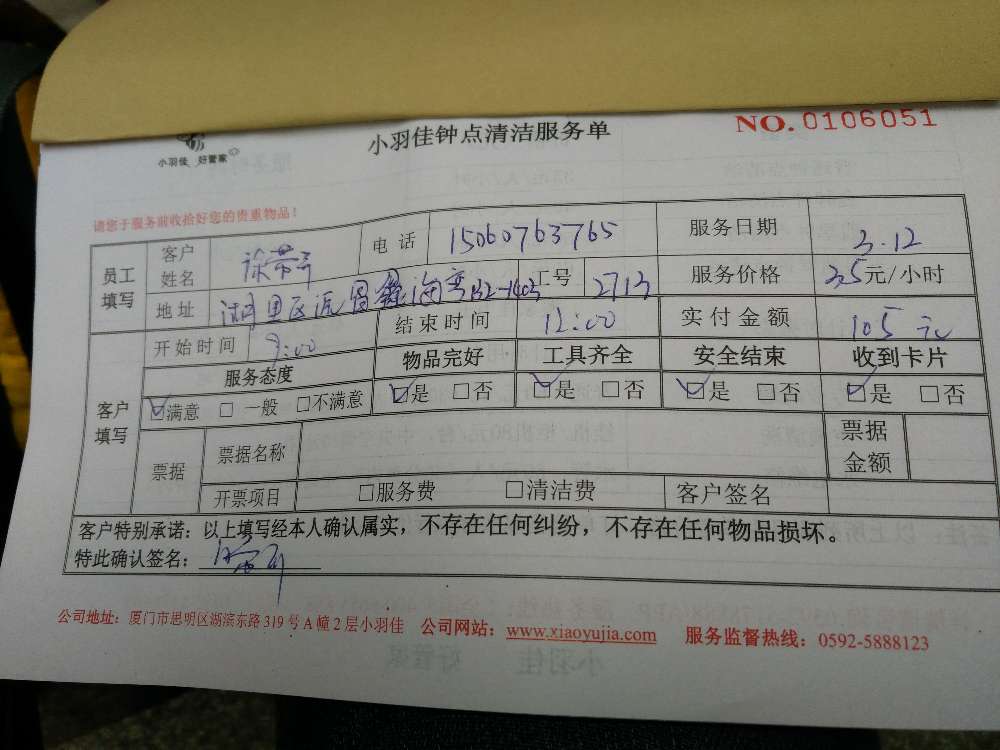 小羽佳 好管家
小羽佳钟点清洁服务单
NO. 0106051
请您于服务前收拾好您的贵重物品！
员工填写 客户姓名 电话 15060763765 服务日期 3.12
地址 湖里区 132-1403 工号 2713 服务价格 35元/小时
客户填写 开始时间 9:00 结束时间 12:00 实付金额 105元
服务态度 物品完好 工具齐全 安全结束 收到卡片
☑满意 □ 一般 □不满意 ☑是 □否 ☑是 □否 ☑是 □否 ☑是 □否
票据 票据名称 票据金额
开票项目 □服务费 □清洁费 客户签名
客户特别承诺：以上填写经本人确认属实，不存在任何纠纷，不存在任何物品损坏。
特此确认签名：
公司地址：厦门市思明区湖滨东路 319 号 A 幢 2 层小羽佳 公司网站：www.xiaoyujia.com 服务监督热线：0592-5888123